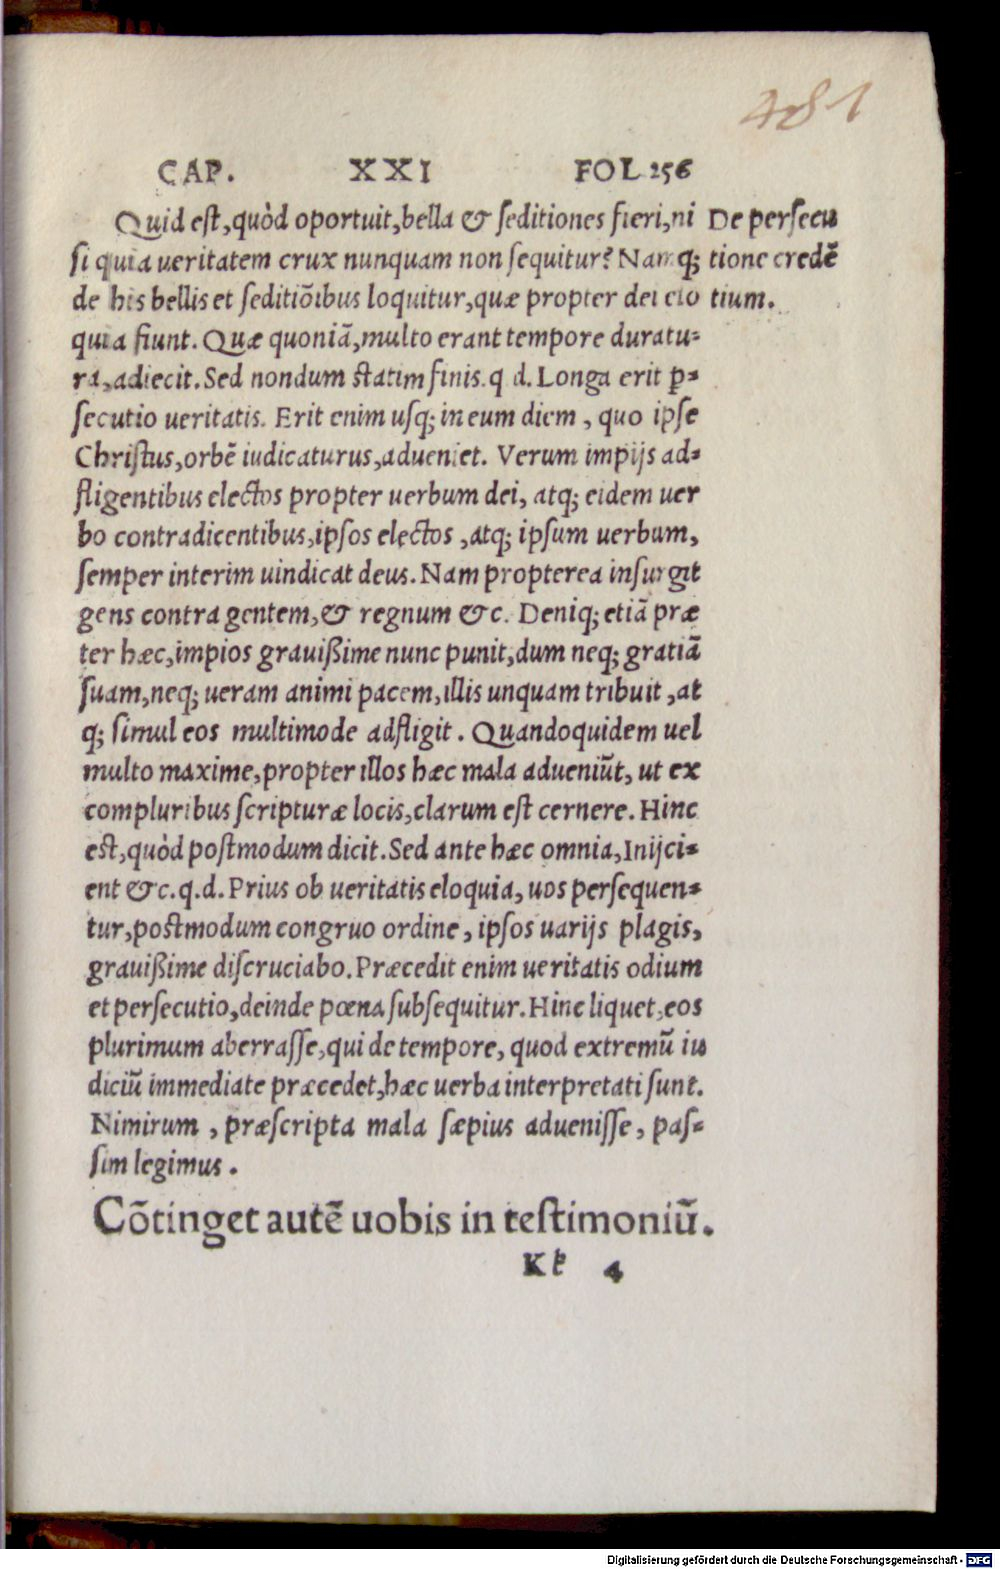 481
CAP. XXI FOL 256
Quid est, quòd oportuit, bella & seditiones fieri, ni
si quia veritatem crux nunquam non sequitur? Namq;
de his bellis et seditiõibus loquitur, quæ propter dei elo
quia fiunt. Quæ quoniã, multo erant tempore duratu-
ra, adiecit. Sed nondum statim finis. q d. Longa erit p-
secutio veritatis. Erit enim usq; in eum diem, quo ipse
Christus, orbẽ iudicaturus, adveniet. Verum impijs ad-
fligentibus electos propter uerbum dei, atq; eidem uer
bo contradicentibus, ipsos electos, atq; ipsum uerbum,
semper interim uindicat deus. Nam propterea insurgit
gens contra gentem, & regnum &c. Deniq; etiã præ
ter hæc, impios grauißime nunc punit, dum neq; gratiã
suam, neq; ueram animi pacem, illis unquam tribuit, at
q; simul eos multimode adfligit. Quandoquidem uel
multo maxime, propter illos hæc mala adueniũt, ut ex
compluribus scripturæ locis, clarum est cernere. Hinc
est, quòd postmodum dicit. Sed ante hæc omnia, Inijci-
ent &c. q. d. Prius ob ueritatis eloquia, uos persequen-
tur, postmodum congruo ordine, ipsos uarijs plagis,
grauißime discruciabo. Præcedit enim ueritatis odium
et persecutio, deinde pœna subsequitur. Hinc liquet, eos
plurimum aberrasse, qui de tempore, quod extremũ iu
diciũ immediate præcedet, hæc uerba interpretati sunt.
Nimirum, præscripta mala sæpius aduenisse, pas-
sim legimus.
De persecu
tione credẽ
tium.
Cõtinget autẽ uobis in testimoniũ.
Kk 4
Digitalisierung gefördert durch die Deutsche Forschungsgemeinschaft - DFG